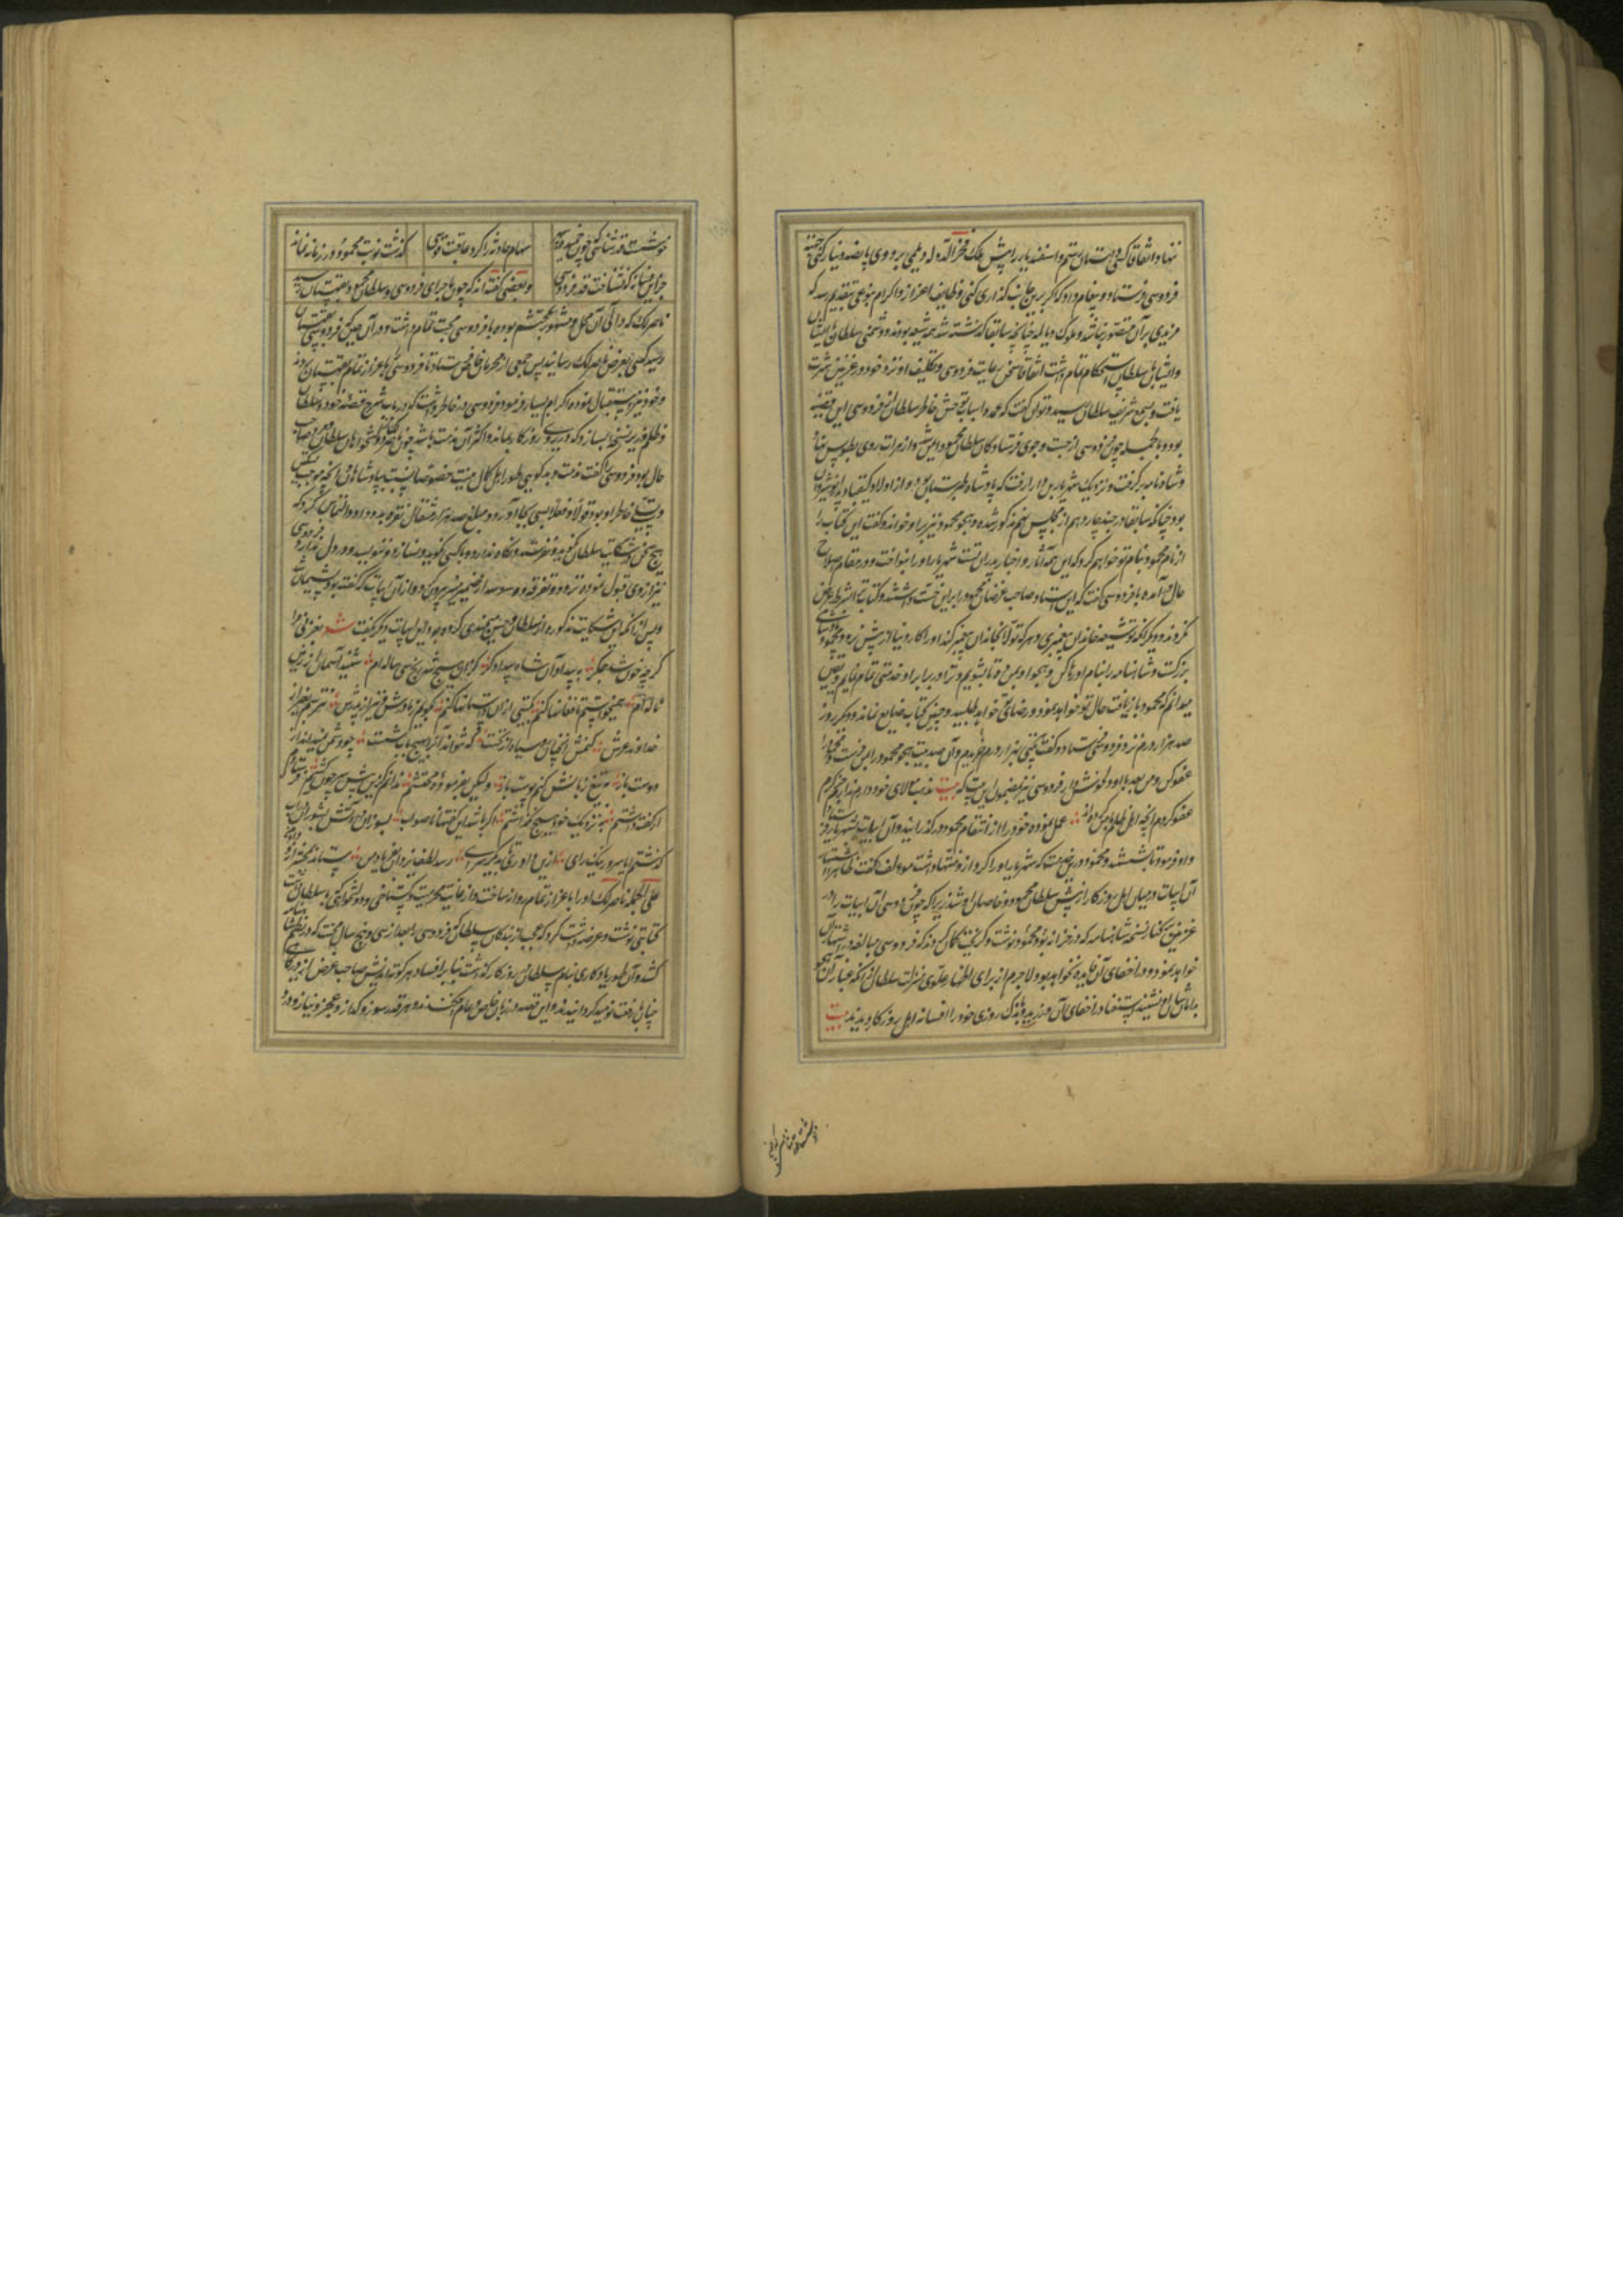 نهاد و اتفاقا کسی داستان رستم و اسفندیار را پیش ملک فخر الدوله دیلمی برد وی پانصد دینار رکنی
فردوسی فرستاد و پیغام داد که اگر برین جانب گذاری کنی وظایف اعزاز و اکرام بنوعی تقدیم رسد که
مزیدی بر آن متصور نباشد و ملوک دیالمه چنانچه سابقا گذشته شد همه شیعه بودند و دشمنی سلطان بایشان
و ایشان با سلطان استحکام تمام داشت اتفاقا سخن رعایت فردوسی و تکلیف او نزد خود در غزنین شهرت
یافت و بسمع شریف سلطان رسید و توان گفت که عمده اسباب توحش خاطر سلطان از فردوسی این قضیه
بود و بالجمله چون فردوسی از جست و جوی فرستادگان سلطان محمود ایمن شد و از هرات روی بطوس نهاد
و شاهنامه بر گرفت و نزدیک شهریار بن دارا رفت که پادشاه طبرستان بود و از اولاد کیقباد
بود چنانکه سابقا در جند چهاردهم از مجلس پنجم مذکور شده و هجو محمود نیز بر او خواند و گفت این کتاب را
از نام محمود بنام تو خواهم کرد که این همه آثار و اخبار پدران تست شهریار او را بنواخت و در مقام اصلاح
حال در آمده با فردوسی گفت که ای استاد صاحب غرضان محمود را بر این داشتند و کتاب ترا بشرط عرض
نکردند و دیگر آنکه تو شیعه خاندان پیغمبری و هر که تولا بخاندان پیغمبر کند او را کار دنیا از پیش نرود و محمود پادشاهی
بزرگست و شاهنامه را بنام او رها کن و هجو او بمن ده تا بشویم و ترا در برابر او خدمتی تمام نمایم و یقین
میدانم که محمود باز یافت حال تو خواهد نمود و رضای تو خواهد طلبید و چنین کتاب ضایع نماند و دیگر روز
صد هزار درم نزد فردوسی فرستاد و گفت بیتی بهزار درم خریدم و آن صد بیت هجو محمود را بمن فرست و محمود را
عفو کن و من بعد با او دل خوش دار فردوسی نیز بمضمون این بیت که بیت مذهب والای خود دارم ندارم جز کرم
عفو کردم آنچه اهل ظلم با من کرده اند عمل نموده خود را از انتقام محمود در گذرانید و آن ابیات بشهریار فرستاد
و او فرمود تا بشستند و محمود درین منت که شهریار او را کرد از او منتها داشت مولف گفت ظاهرا اشتهار
آن ابیات در میان اهل روزگار از پیش سلطان محمود و خاصان او شد زیرا که چون فردوسی آن ابیات را در
غزنین بر کنار نسخه شاهنامه که در خزانه بود محمود نوشت و گریخت گمان کردند که فردوسی مبالغه در اشتهار آن
خواهد نمود و در اخفای آن فایده نخواهد بود لاجرم از برای اظهار علوی منزلت سلطان از آنکه غبار آن هجو
بدامان او نشیند استبعاد در اخفای آن ورزیدند و باندک روزی خود را افسانه اهل روزگار دیدند بیت
خوشست قدر شناسی که چون خمیده سپهر
سهام حادثه را کرد عاقبت قوسی
گذشت نوبت محمود و در زمانه نماند
جز این فسانه که نشناخت قدر فردوسی
و بعضی گفته اند که چون ماجرای فردوسی و سلطان محمود بقهستان رسید
ناصر لک که والی آن محل و مشهور بمحتشم بوده با فردوسی محبت تمام داشت و در آن حین که فردوسی بقهستان
رسید کسی بعرض ناصر لک رسانید پس جمعی از محرمان خاص فرستاد تا فردوسی را باعزاز تمام بقهستان بردند
و خود نیز استقبال نموده اکرام بسیار فرمود و فردوسی در خاطر داشت که در باب شرح قصه خود و سلطان
و ظلم او در نسخه بسازد که در روی روزگار بماند و اکثر آن مذمت باشد چون ناصر لک از هواخواهان سلطان و صاحب
حال بود فردوسی را گفت مذمت و بدگویی طور اهل کمال نیست خصوصا نسبت بپادشاهان و آنچه موجب تسکین
و تسلی خاطر او بود قولا و فعلا بسی بجا آورد و مبلغ صد هزار مثقال نقره بدو داد و التماس کرد که
هیچ سخن شکایت سلطان نگوید و ننویسد و نگاه ندارد و با کسی نگوید و نسازد و ننویسد و در دل ندارد و فردوسی
نیز از وی قبول نموده تردد و تفرقه و وسوسه از ضمیر منیر بیرون کرد و از آن ابیات که گفته بود پشیمان شد
و پس از آنکه این شکایت مذکوره از سلطان و حسن میمندی کرده بود این ابیات دیگر بگفت شعر بغزنی مرا
گرچه خون شد جگر ز بیداد آن شاه بیدادگر کزان هیچ شد رنج سی ساله ام شنید آسمان از زمین
ناله ام همیخواستم تا فغانها کنم بگیتی از آن داستانها کنم بگویم ز مادرش و نیز از پدرش نترسم بغیر از
خداوند عرش کنمش آنچنان روسیاه از سخن که نتواند آنرا بهیچ آب شست چو دشمن نمیداند از
دوست باز به تیغ زبانش کنم پوست باز ولیکن بفرموده محتشم ندانم کزین پیش سر چون کشم فرستادم
ار گفته داشتم به نزدیک خود هیچ نگذاشتم اگر باشد این گفتها ناصواب بسوزان در آتش بشوران در آب
گذشتم ایا سرور نیک رای ازین داوری تا بدیگر سرای رسد لطف یزدان بفریاد من ستاند بمحشر ازو داد من
علی الجمله ناصر لک او را باعزاز تمام روانه ساخت و از غایت محرمیت و گستاخی و دولتخواهی که با سلطان داشت
کتابتی نوشت و عرضه داشت کرد که عجب از بندگان سلطان که فردوسی را بعد از سی و پنج سال محنت که در نظم شاهنامه
کشد و آن طور یادگاری بنام سلطان در روزگار گذاشت بنا بر افساد هر کوته اندیش صاحب غرض از درگاه
چنان رفعت نومید گردانیدند و این قصه در زبان خاص و عام افکندند و هر قدر سوز و گداز و عجز و نیاز و درد